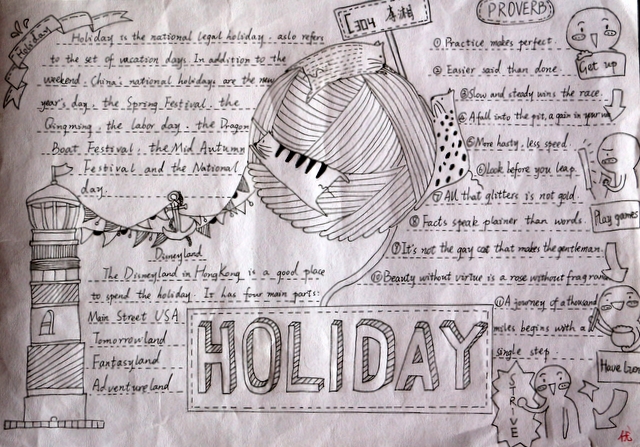 Holiday
Holiday is the national legal holiday. aslo refers
to the set of vacation days. In addition to the
weekend. China's national holidays are the new
year's day. the Spring Festival. the
Qingming. the labor day. the Dragon
Boat Festival. the Mid Autumn
Festival and the National
day.
Disneyland
The Disneyland in HongKong is a good place
to spend the holiday. It has four main parts:
Main Street USA
Tomorrowland
Fantasyland
Adventureland
304
HOLIDAY
PROVERB
① Practice makes perfect.
② Easier said than done
③ Slow and steady wins the race.
④ A fall into the pit, a gain in your wit
⑤ More hasty, less speed.
⑥ Look before you leap.
⑦ All that glitters is not gold.
⑧ Facts speak plainer than words.
⑨ It's not the gay coat that makes the gentleman.
⑩ Beauty without virtue is a rose without fragrance
⑪ A journey of a thousand
miles begins with a
single step
Get up
Play games
Have
STRIVE